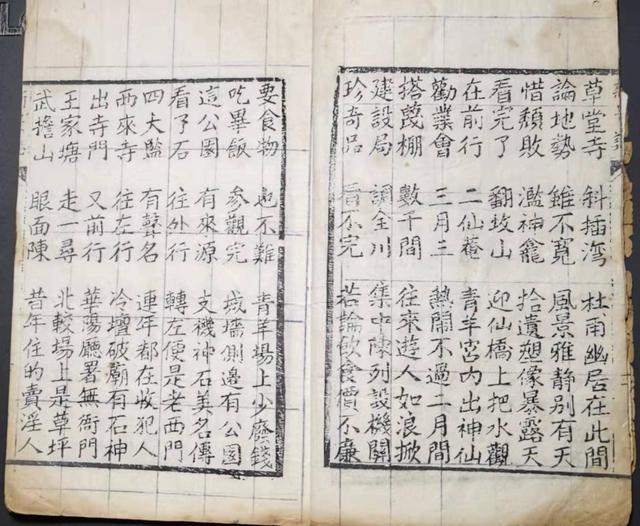 草堂寺 斜插湾 杜甫幽居在此間
論地勢 雖不寬 風景雅静别有天
惜頹敗 濫神龕 拾遺塑像暴露天
看完了 翻坟山 迎仙橋上把水觀
在前行 二仙菴 青羊宮内出神仙
勸業會 三月三 熱鬧不過二月間
搭蓆棚 數千間 往來遊人如浪掀
建設局 調全川 集中陳列設機關
珍奇品 看不完 若論飲食價不廉
要食物 也不難 青羊場上少廢錢
吃畢飯 參觀完 城墻側邊有公園
這公園 有來源 支磯神石美名傳
看了石 往外行 轉左便是老西門
四大監 有聲名 連年都在收犯人
西來寺 往左行 冷壇破廟有石神
出寺門 又前行 華陽廳署無衙門
王家塘 走一尋 北較場上是草坪
武擔山 眼面陳 昔年住的賣淫人